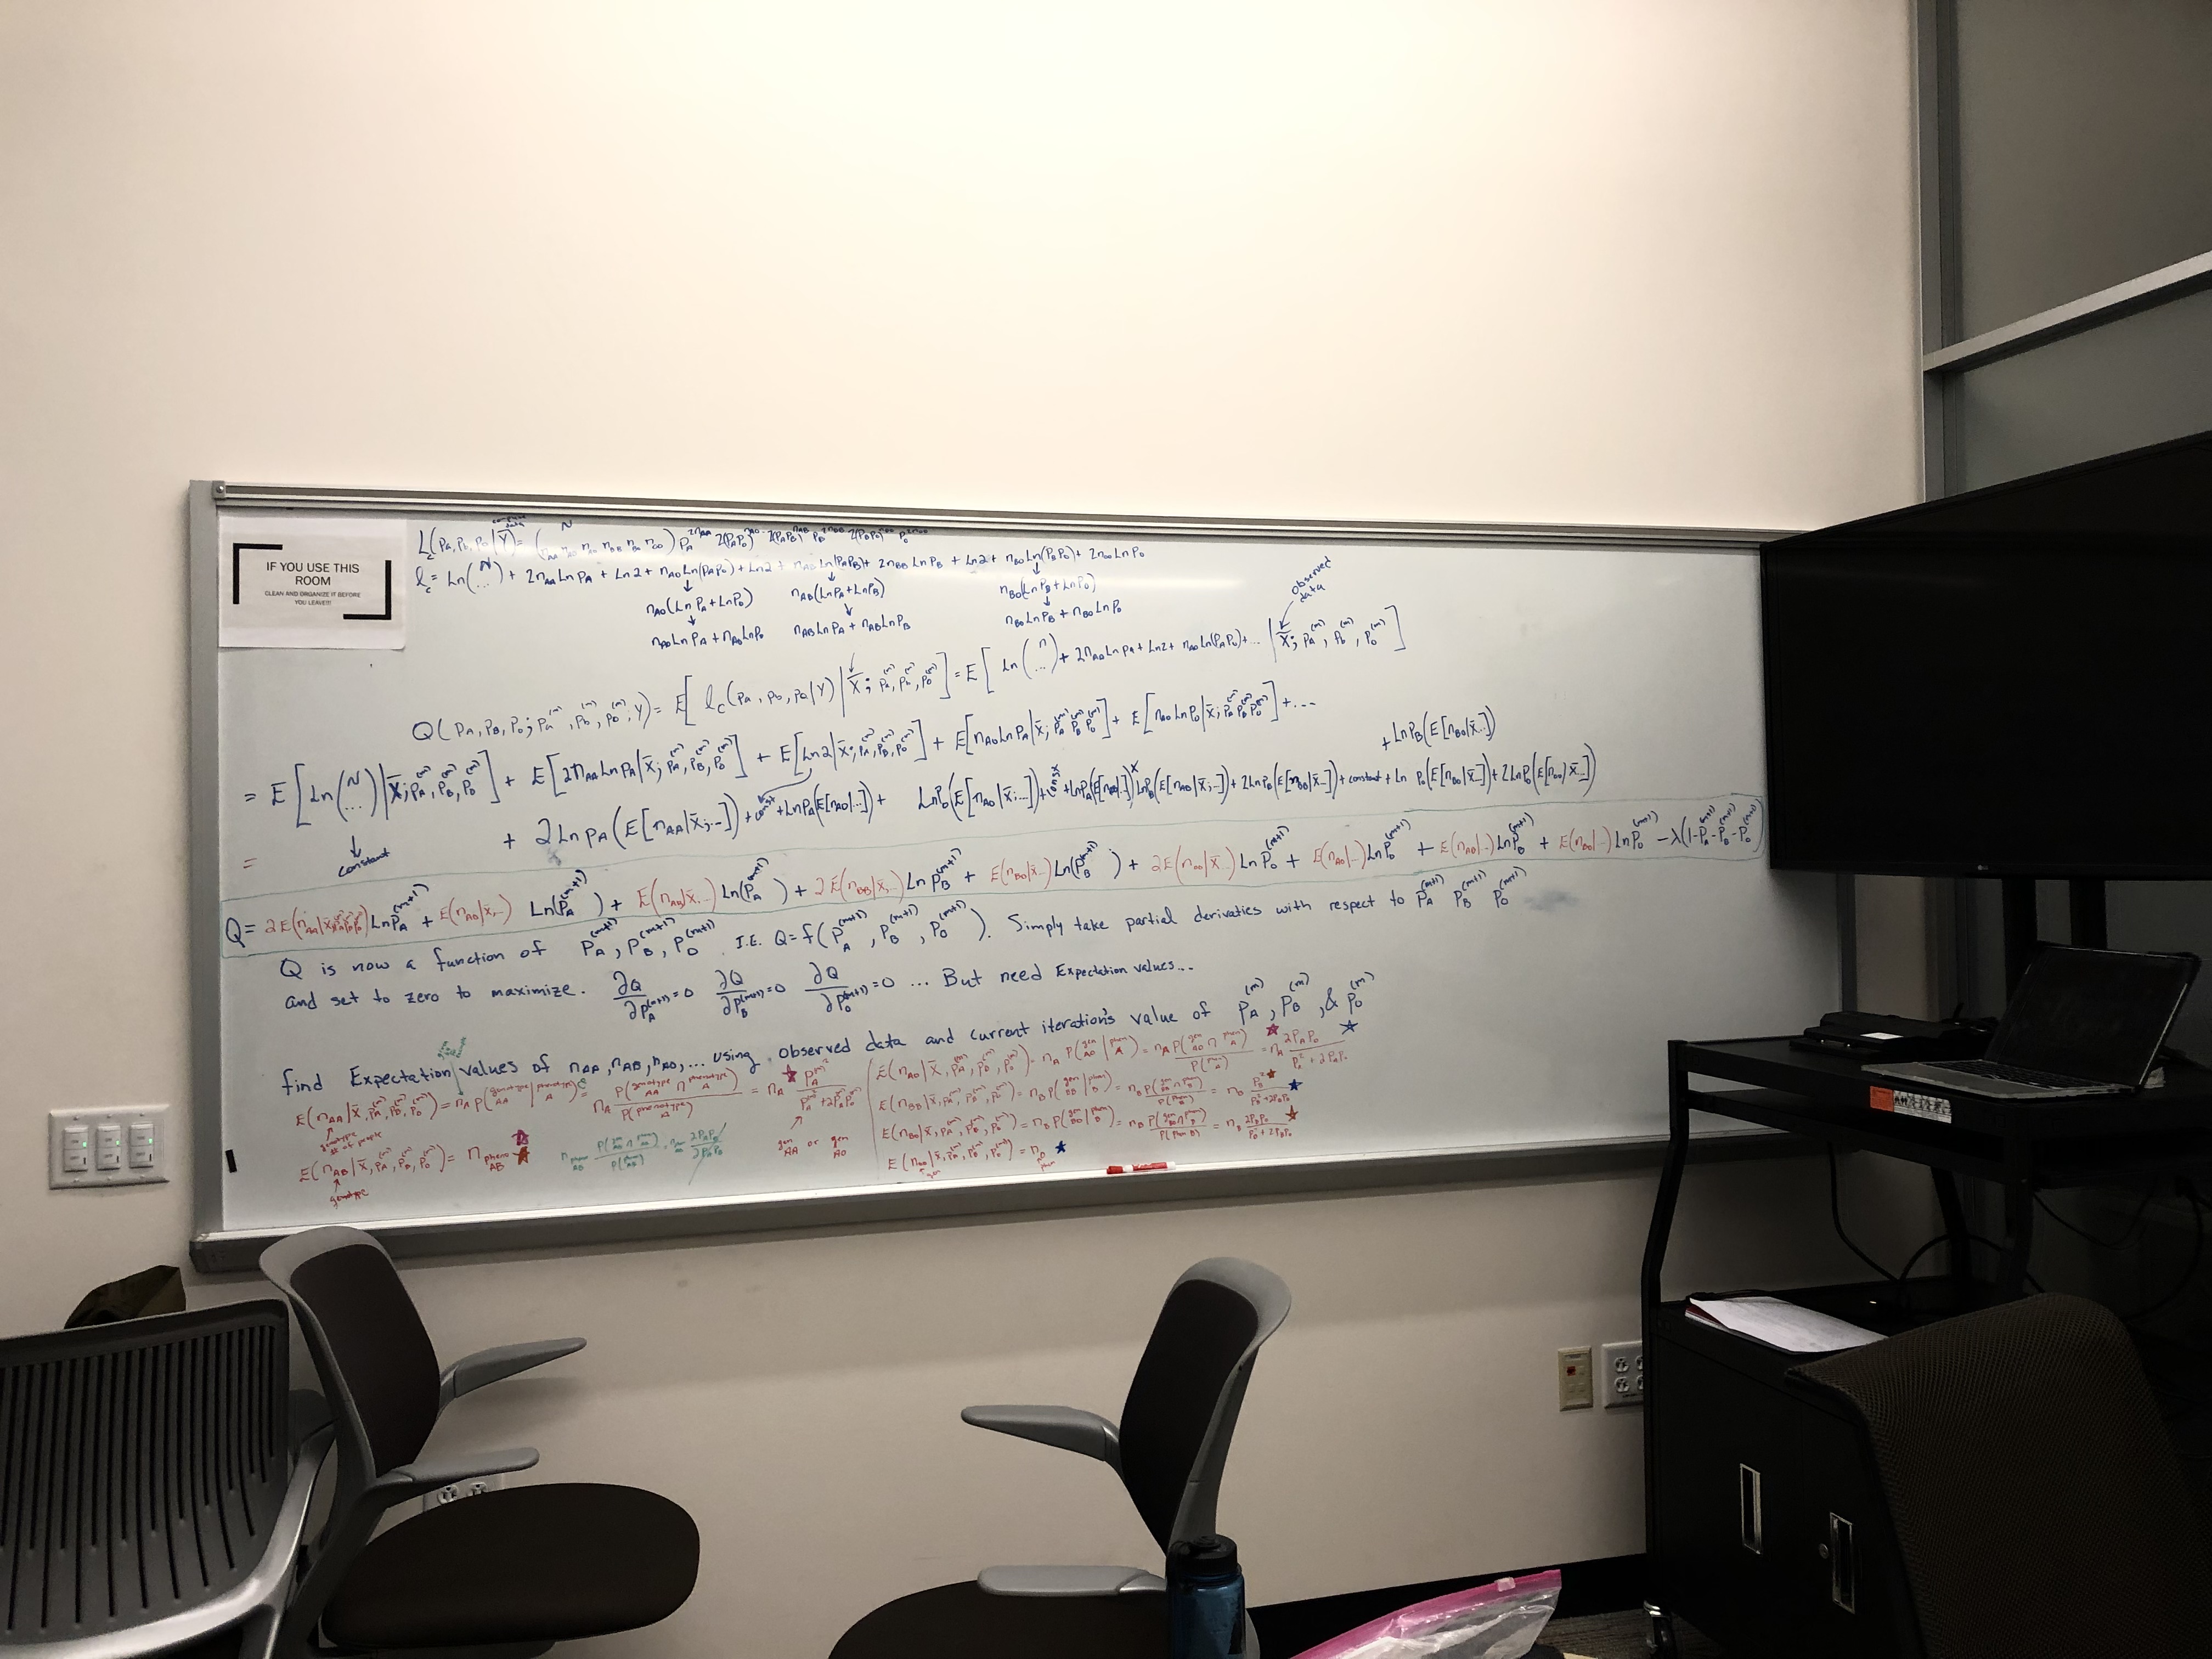 IF YOU USE THIS
ROOM
CLEAN AND ORGANIZE IT BEFORE
YOU LEAVE!!!
complete data
L_c(P_A, P_B, P_O | Y) = (N n_AA n_AO n_AB n_BB n_BO n_OO) P_A^{2n_AA} 2(P_A P_O)^{n_AO} · 2(P_A P_B)^{n_AB} P_B^{2n_BB} 2(P_B P_O)^{n_BO} P_O^{2n_OO}
l_c = Ln(N ...) + 2n_AA Ln P_A + Ln2 + n_AO Ln(P_A P_O) + Ln2 + n_AB Ln(P_A P_B) + 2n_BB Ln P_B + Ln2 + n_BO Ln(P_B P_O) + 2n_OO Ln P_O
n_AO(Ln P_A + Ln P_O) n_AB(Ln P_A + Ln P_B) n_BO(Ln P_B + Ln P_O)
n_AO Ln P_A + n_AO Ln P_O n_AB Ln P_A + n_AB Ln P_B n_BO Ln P_B + n_BO Ln P_O
observed data
Q(P_A, P_B, P_O; P_A^(m), P_B^(m), P_O^(m), Y) = E[l_c(P_A, P_B, P_O | Y) | X̄; P_A^(m), P_B^(m), P_O^(m)] = E[Ln(n ...) + 2n_AA Ln P_A + Ln2 + n_AO Ln(P_A P_O) + ... | X̄; P_A^(m), P_B^(m), P_O^(m)]
= E[Ln(N ...) | X̄; P_A^(m), P_B^(m), P_O^(m)] + E[2n_AA Ln P_A | X̄; P_A^(m), P_B^(m), P_O^(m)] + E[Ln2 | X̄; P_A^(m), P_B^(m), P_O^(m)] + E[n_AO Ln P_A | X̄; P_A^(m) P_B^(m) P_O^(m)] + E[n_AO Ln P_O | X̄; P_A^(m) P_B^(m) P_O^(m)] + ...
+ Ln P_B(E[n_BO | X̄...])
= constant + 2 Ln P_A(E[n_AA | X̄; ...]) + const + Ln P_A(E[n_AO | ...]) + Ln P_O(E[n_AO | X̄; ...]) + const + Ln P_A(E[n_AB | ..]) Ln P_B(E[n_AB | X̄; ...]) + 2 Ln P_B(E[n_BB | X̄...]) + constant + Ln P_O(E[n_BO | X̄...]) + 2 Ln P_O(E[n_OO | X̄...])
Q = 2E(n_AA | X̄; P_A P_B P_O) Ln P_A^(m+1) + E(n_AO | X̄, ...) Ln(P_A^(m+1)) + E(n_AB | X̄, ...) Ln(P_A^(m+1)) + 2E(n_BB | X̄, ...) Ln P_B^(m+1) + E(n_BO | X̄...) Ln(P_B^(m+1)) + 2E(n_OO | X̄ ...) Ln P_O^(m+1) + E(n_AO | ...) Ln P_O^(m+1) + E(n_AB | ...) Ln P_B^(m+1) + E(n_BO | ...) Ln P_O^(m+1) − λ(1 − P_A^(m+1) − P_B^(m+1) − P_O^(m+1))
Q is now a function of P_A^(m+1), P_B^(m+1), P_O^(m+1) I.E. Q = f(P_A^(m+1), P_B^(m+1), P_O^(m+1)). Simply take partial derivaties with respect to P_A^(m+1) P_B^(m+1) P_O^(m+1)
and set to zero to maximize. ∂Q/∂P_A^(m+1) = 0 ∂Q/∂P_B^(m+1) = 0 ∂Q/∂P_O^(m+1) = 0 ... But need Expectation values...
find Expectation values of n_AA, n_AB, n_AO, ... using observed data and current iteration's value of P_A^(m), P_B^(m), & P_O^(m)
E(n_AA | X̄, P_A^(m), P_B^(m), P_O^(m)) = n_A P(genotype AA | phenotype A) = n_A P(genotype AA ∩ phenotype A) / P(phenotype A) = n_A P_A^2 / (P_A^2 + 2P_A P_O)
genotype # of people
gen AA or gen AO
E(n_AB | X̄, P_A^(m), P_B^(m), P_O^(m)) = n pheno AB
genotype
n pheno AB P(gen AB ∩ phen AB) / P(phen AB) = n 2P_A P_B / 2P_A P_B
E(n_AO | X̄, P_A^(m), P_B^(m), P_O^(m)) = n_A P(gen AO | phen A) = n_A P(gen AO ∩ phen A) / P(phen A) = n_A 2P_A P_O / (P_A^2 + 2P_A P_O)
E(n_BB | X̄, P_A^(m), P_B^(m), P_O^(m)) = n_B P(gen BB | phen B) = n_B P(gen BB ∩ phen B) / P(phen B) = n_B P_B^2 / (P_B^2 + 2P_B P_O)
E(n_BO | X̄, P_A^(m), P_B^(m), P_O^(m)) = n_B P(gen BO | phen B) = n_B P(gen BO ∩ phen B) / P(phen B) = n_B 2P_B P_O / (P_B^2 + 2P_B P_O)
E(n_OO | X̄, P_A^(m), P_B^(m), P_O^(m)) = n_O phen
gen